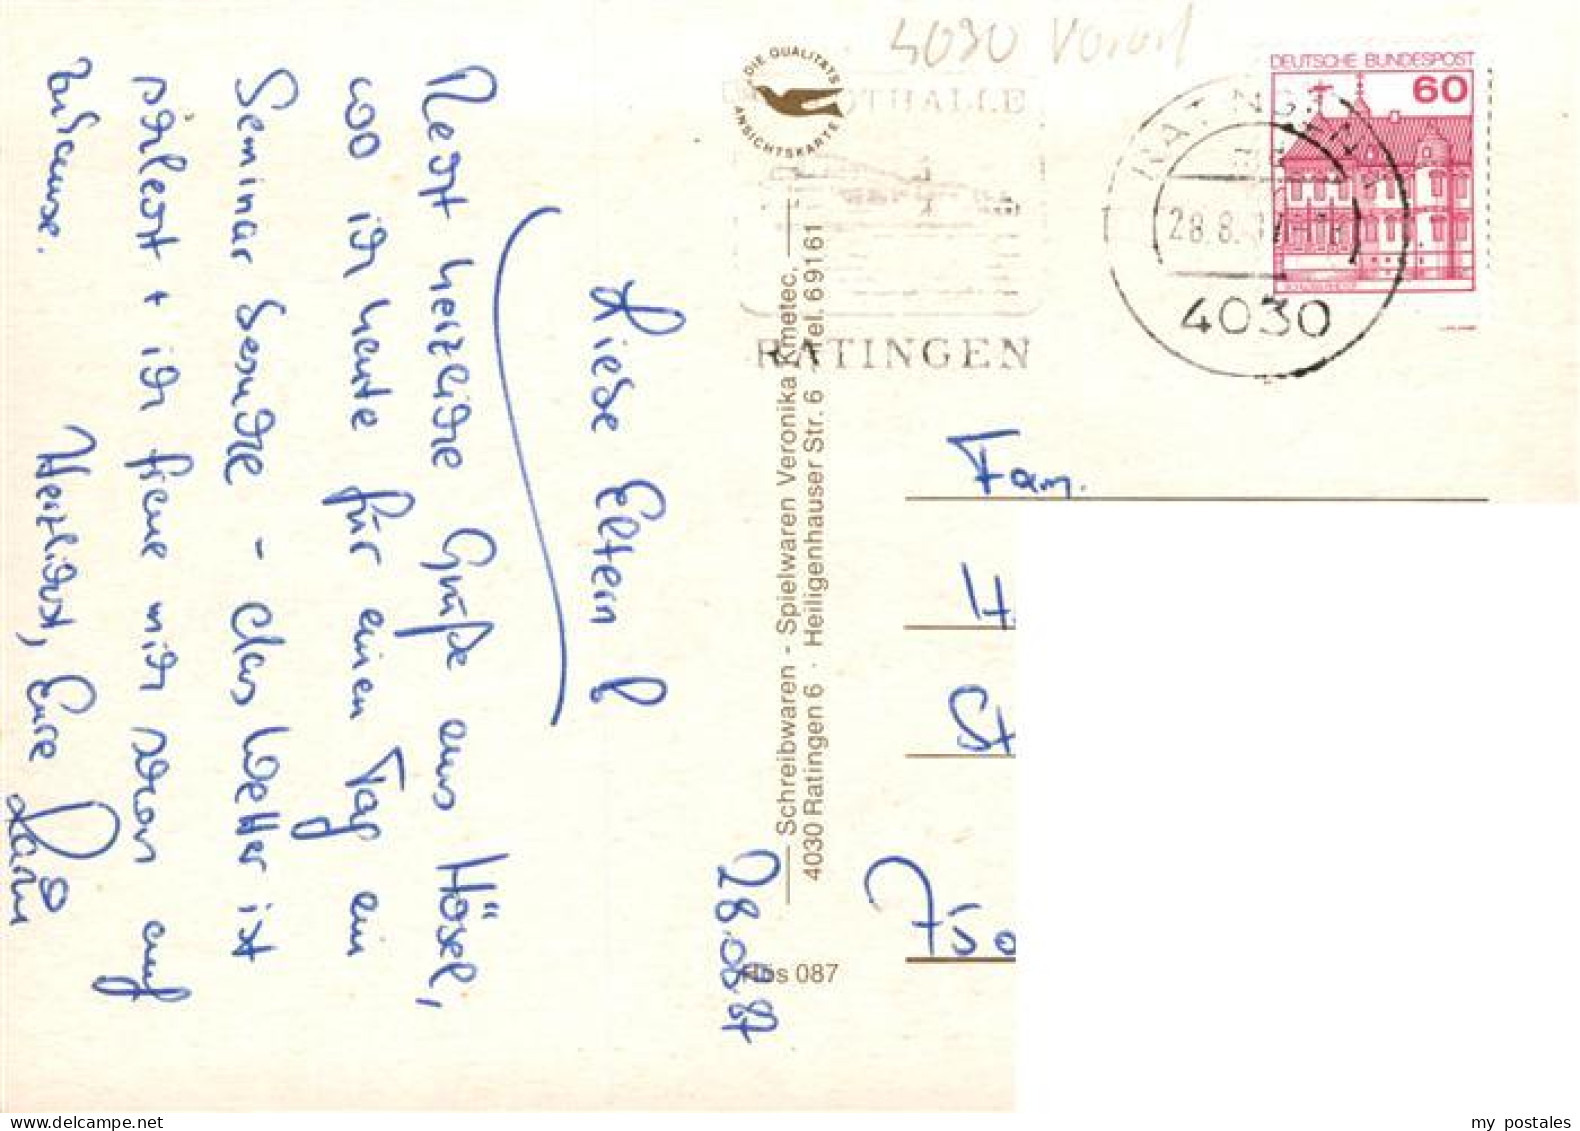 28.08.87
Liebe Eltern!
Recht herzliche Grüße aus Hösel,
wo ich heute für einen Tag ein
Seminar besuche - das Wetter ist
schlecht + ich freue mich schon auf
zuhause.
Herzlichst, Eure
DIE QUALITÄTS
ANSICHTSKARTE
Schreibwaren - Spielwaren Veronika Kmetec,
4030 Ratingen 6 · Heiligenhauser Str. 6 · Tel. 69161
Hös 087
4030
THALLE
RATINGEN
DEUTSCHE BUNDESPOST
60
RATINGEN
28.8.
4030
Fam.
my postales